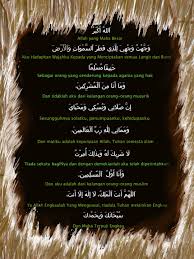 اللهُ أَكْبَرُ
Allah yang Maha Besar
وَجَّهْتُ وَجْهِيَ لِلَّذِي فَطَرَ السَّمٰوَاتِ وَالْأَرْضَ
Aku Hadapkan Wajahku Kepada yang Menciptakan semua Langit dan
حَنِيفًا مُسْلِمًا
Sebagai orang yang cenderung kepada agama yang hak
وَمَا أَنَا مِنَ الْمُشْرِكِينَ
Dan tidaklah aku dari kalangan orang-orang musyrik
إِنَّ صَلَاتِي وَنُسُكِي وَمَحْيَايَ
Sesungguhnya solatku,
وَمَمَاتِي لِلّٰهِ رَبِّ الْعَالَمِينَ
dan matiku adalah kepunyaan Allah, Tuhan
لَا شَرِيكَ لَهُ وَبِذٰلِكَ أُمِرْتُ
Tiada sekutu bagiNya dan dengan demikianlah aku telah diperintahkan
وَأَنَا مِنَ الْمُسْلِمِينَ
Dan aku adalah dari kalangan orang-orang muslim
اَللّٰهُمَّ أَنْتَ الْمَلِكُ، لَا إِلٰهَ إِلَّا أَنْتَ
Ya Allah Engkaulah Yang Menguasai, tiada Tuhan melainkan
سُبْحَانَكَ وَبِحَمْدِكَ
Dan Maha Terpuji Engkau